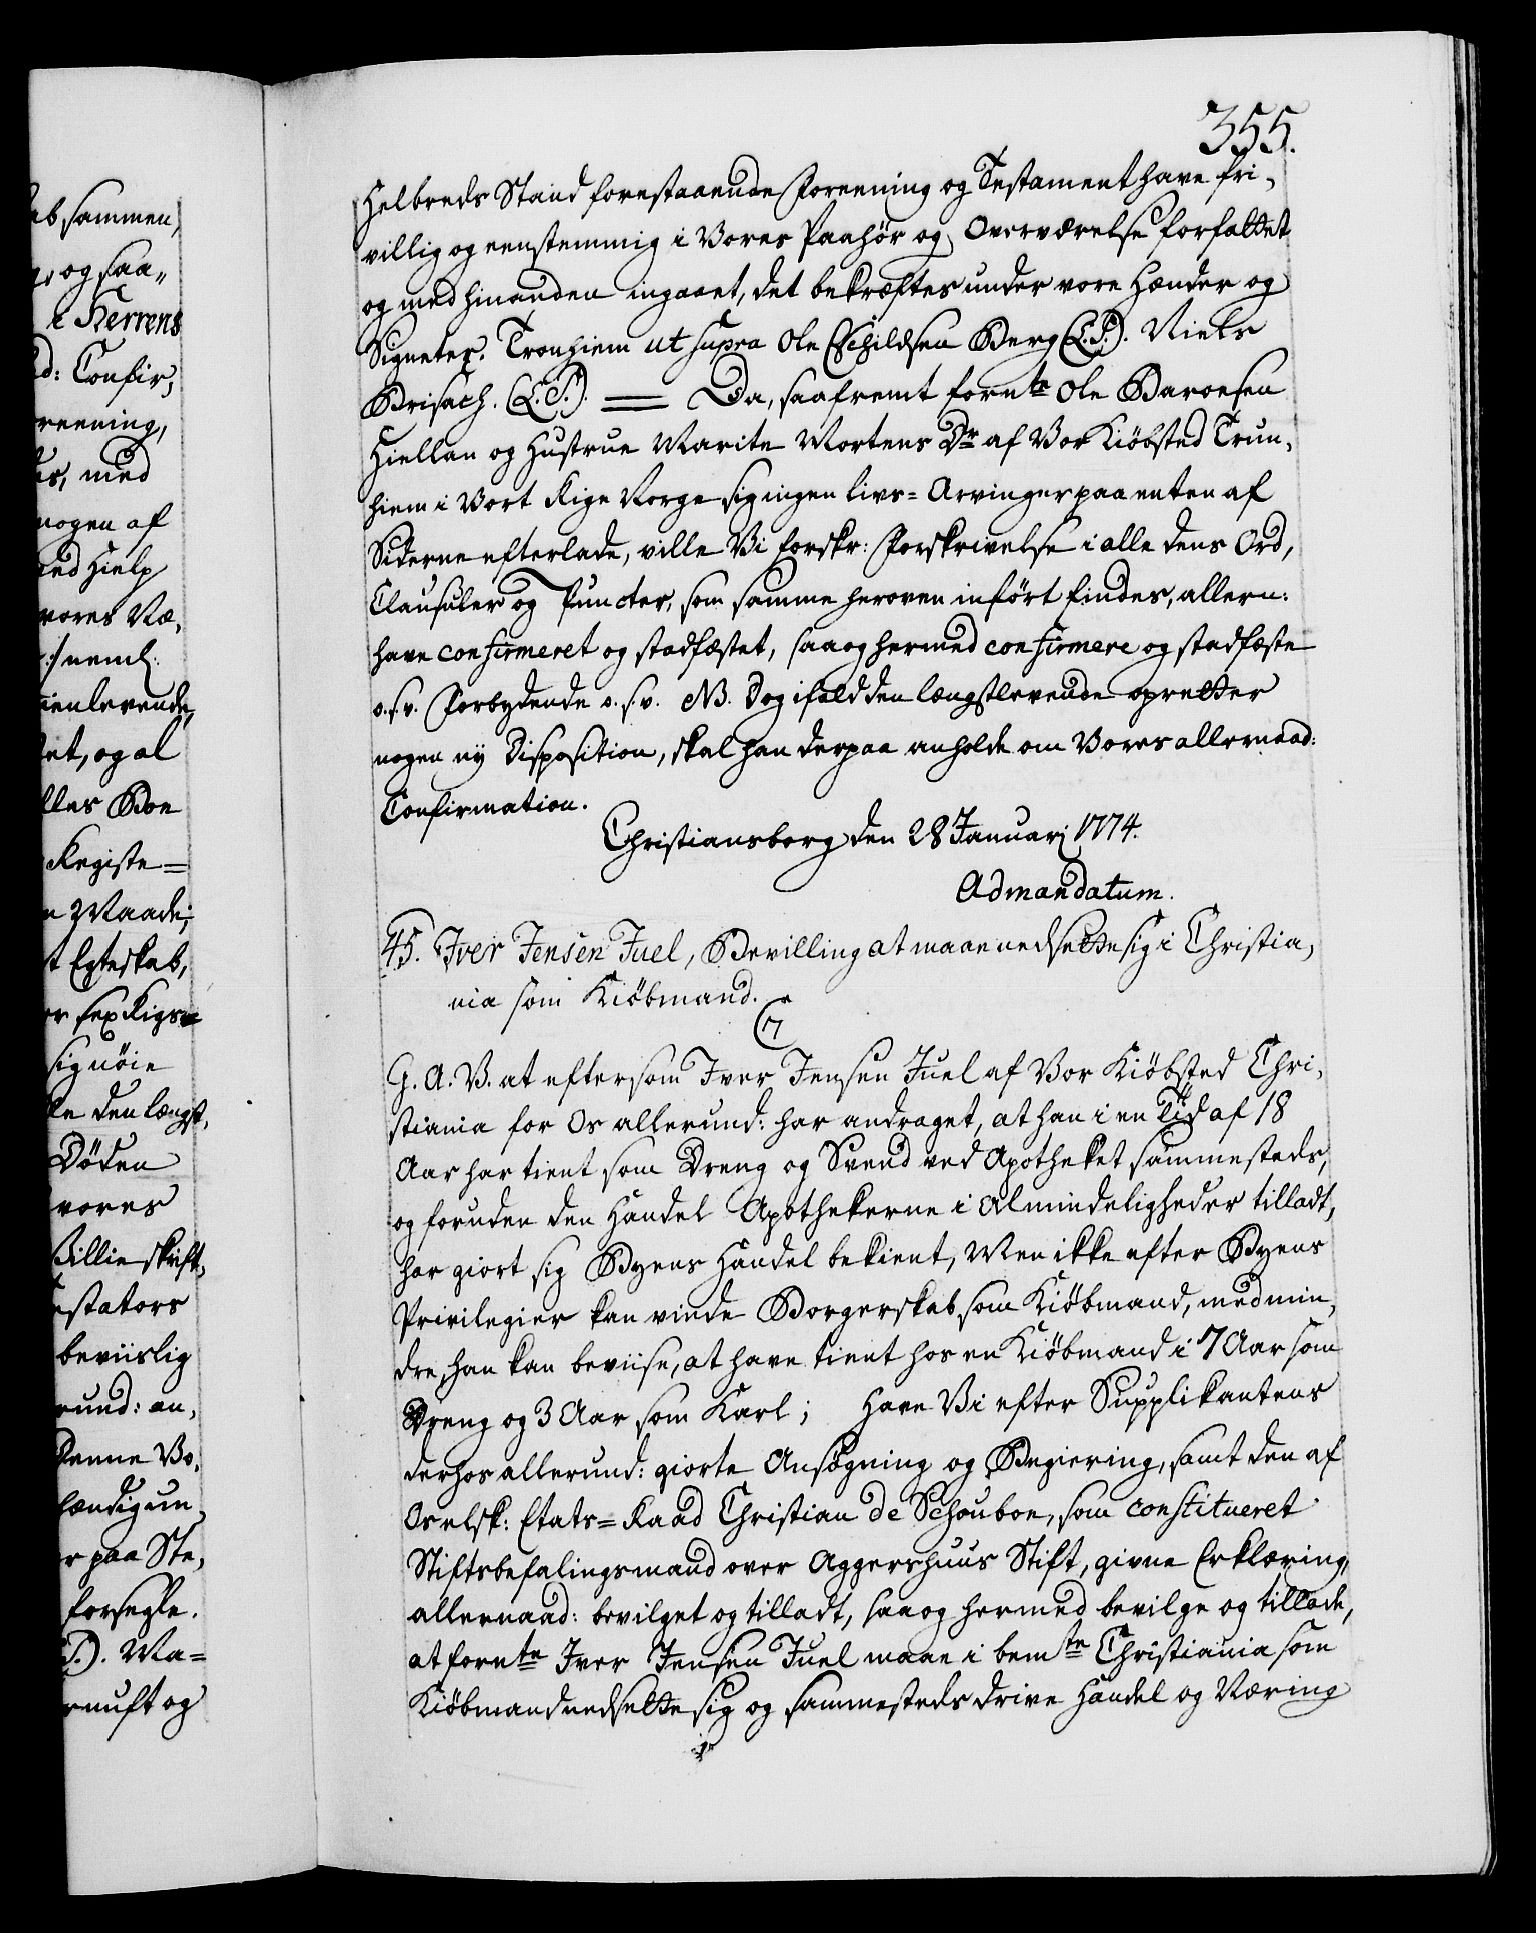 ab sammen,
og saa„
i Herrens
d: Confir,
reening,
med
nogen af
ed Hielp
vores Næ,
neml:
ienlevende,
et, og al
lles Boe
Registe=
n Maade;
t Egteskab,
r sex Rigs=
sig nøie
den længst,
Døden
vores
Billie skrift,
estators
beviislig
rund: an,
denne Vo,
lændig un
r paa Ste,
forsegle.
S.). Ma=
rnuft og
355.
Helbreds Stand forestaaende Foreening og Testament have fri,
villig og eenstemmig i Vores Paahör og Overværelse forfattet
og med hinanden ingaaet, det bekræftes under vore Hænder og
Signeter. Tronhiem ut supra Ole Eschildsen Berg (L.S.). Niels
Brisach. (L.S.). == Da, saafremt fornte Ole Baroesen
Hiellan og Hustrue Marite Mortens Dr af Vor Kiöbsted Trun,
hiem i Vort Rige Norge sig ingen livs= Arvinger paa enten af
Siderne efterlade, ville Vi forskr: Forskrivelse i alle dens Ord,
Clausuler og Puncter, som samme heroven infört findes, allern:
have confirmeret og stadfæstet, saa og hermed confirmere og stadfæste
o.s.v. Forbydende o.s.v. NB. Dog ifald den længstlevende opretter
nogen ny Disposition, skal han derpaa anholde om Vores allernaad:
Confirmation.
Christiansborg den 28 Januarj 1774.
Ad mandatum.
45. Iver Jensen Juel, Bevilling at maae nedsette sig i Christia,
nia som Kiöbmand.
C7
G. A. V. at eftersom Iver Jensen Juel af Vor Kiöbsted Chri,
stiania for Os allerund: har andraget, at han i en Tid af 18
Aar har tient som Dreng og Svend ved Apotheket sammesteds,
og foruden den Handel Apothekerne i Almindeligheder tilladt,
har giort sig Byens Handel bekient, Men ikke efter Byens
Privilegier kan vinde Borgerskab som Kiöbmand, med min,
dre, han kan beviise, at have tient hos en Kiöbmand i 7 Aar som
Dreng og 3 Aar som Karl; Have Vi efter Supplikantens
derhos allerund: giorte Ansøgning og Begiering, samt den af
Os elsk: Etats= Raad Christian de Schouboe, som constitueret
Stiftsbefalingsmand over Aggershuus Stift, givne Erklæring,
allernaad: bevilget og tilladt, saa og hermed bevilge og tillade,
at fornte Iver Jensen Juel maae i bemte Christiania som
Kiöbmand nedsette sig og sammesteds drive Handel og Næring